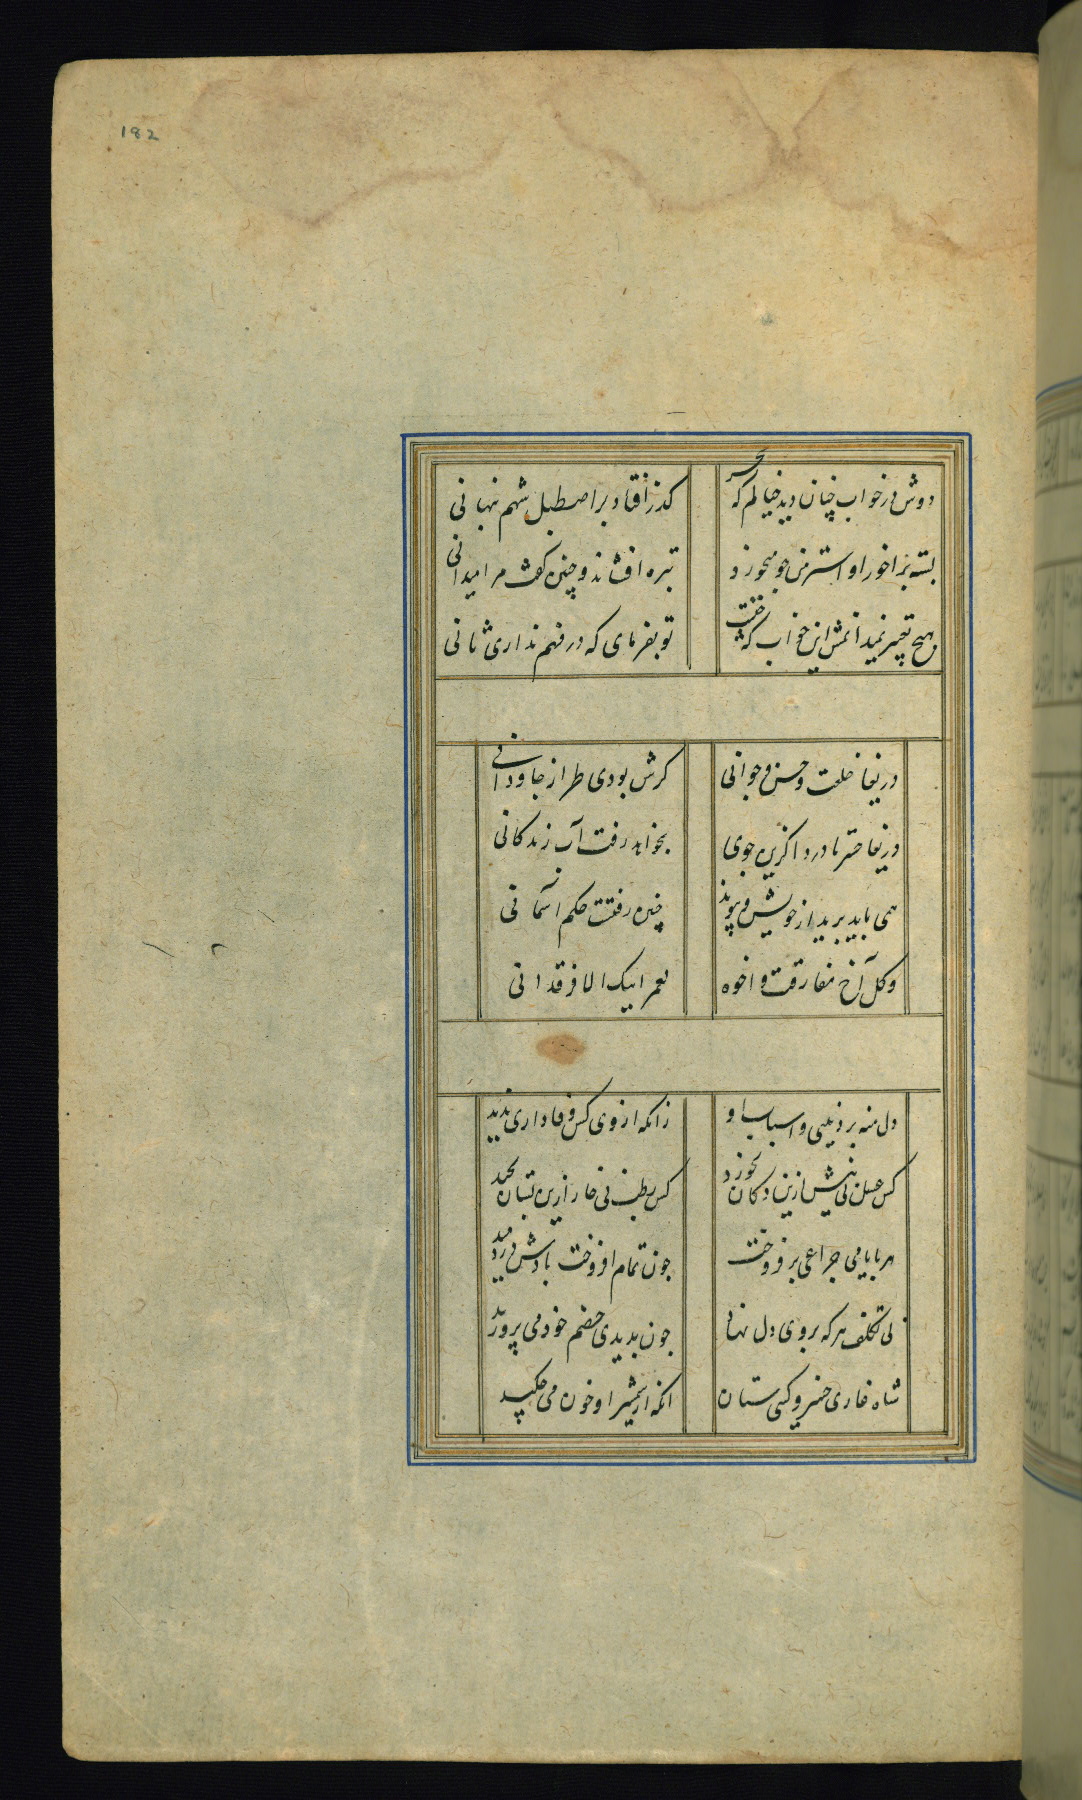 182
دوش در خواب چنان دید خیالم که سحر
کذر افتاد بر اصطبل شهم نهانی
بسته بر آخور او استر من جو میخورد
تیزه افشاند و چنین کفت مرا میدانی
هیچ تعبیر نمیدانمش این خواب که چیست
تو بفرمای که در فهم نداری ثانی
دریغا خلعت و حسن و جوانی
کرش بودی طراز جاودانی
دریغا حسرتا دردا کزین جوی
بخواهد رفت آب زندکانی
همی باید برید از خویش و پیوند
چنین رفتست حکم آسمانی
وکل اخ مفارقت و اخوه
لعمر ابیک الا فرقدانی
دل منه بر دنیی و اسباب او
زانکه از وی کس وفاداری ندید
کس عسل بی نیش ازین دکان نخورد
کس رطب بی خار ازین بستان نچید
هر بایامی چراغی بر فروخت
چون تمام افروخت بادش در دمید
بی تکلف هر که بر وی دل نهاد
چون بدیدی خصم خود می پرورید
شاه غازی خسرو کیتی ستان
انکه از شمشیر او خون می چکید